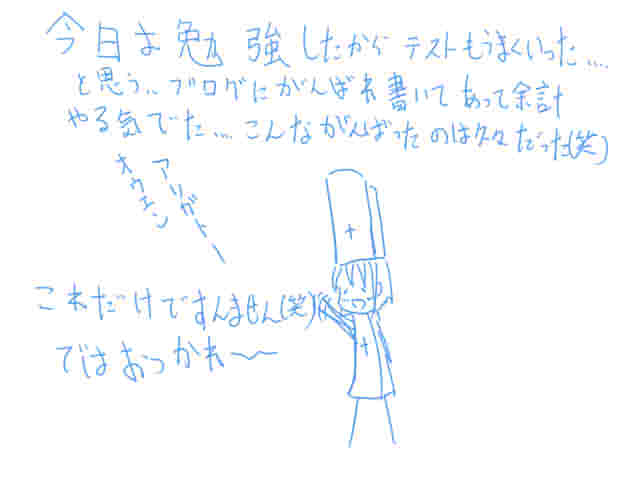 今日は勉強したからテストもうまくいった...
と思う..ブログにがんばれ書いてあって余計
やる気でた...こんながんばったのは久々だった(笑)
アリガトー
オウエン
これだけですんません(笑)
ではおつかれ〜〜